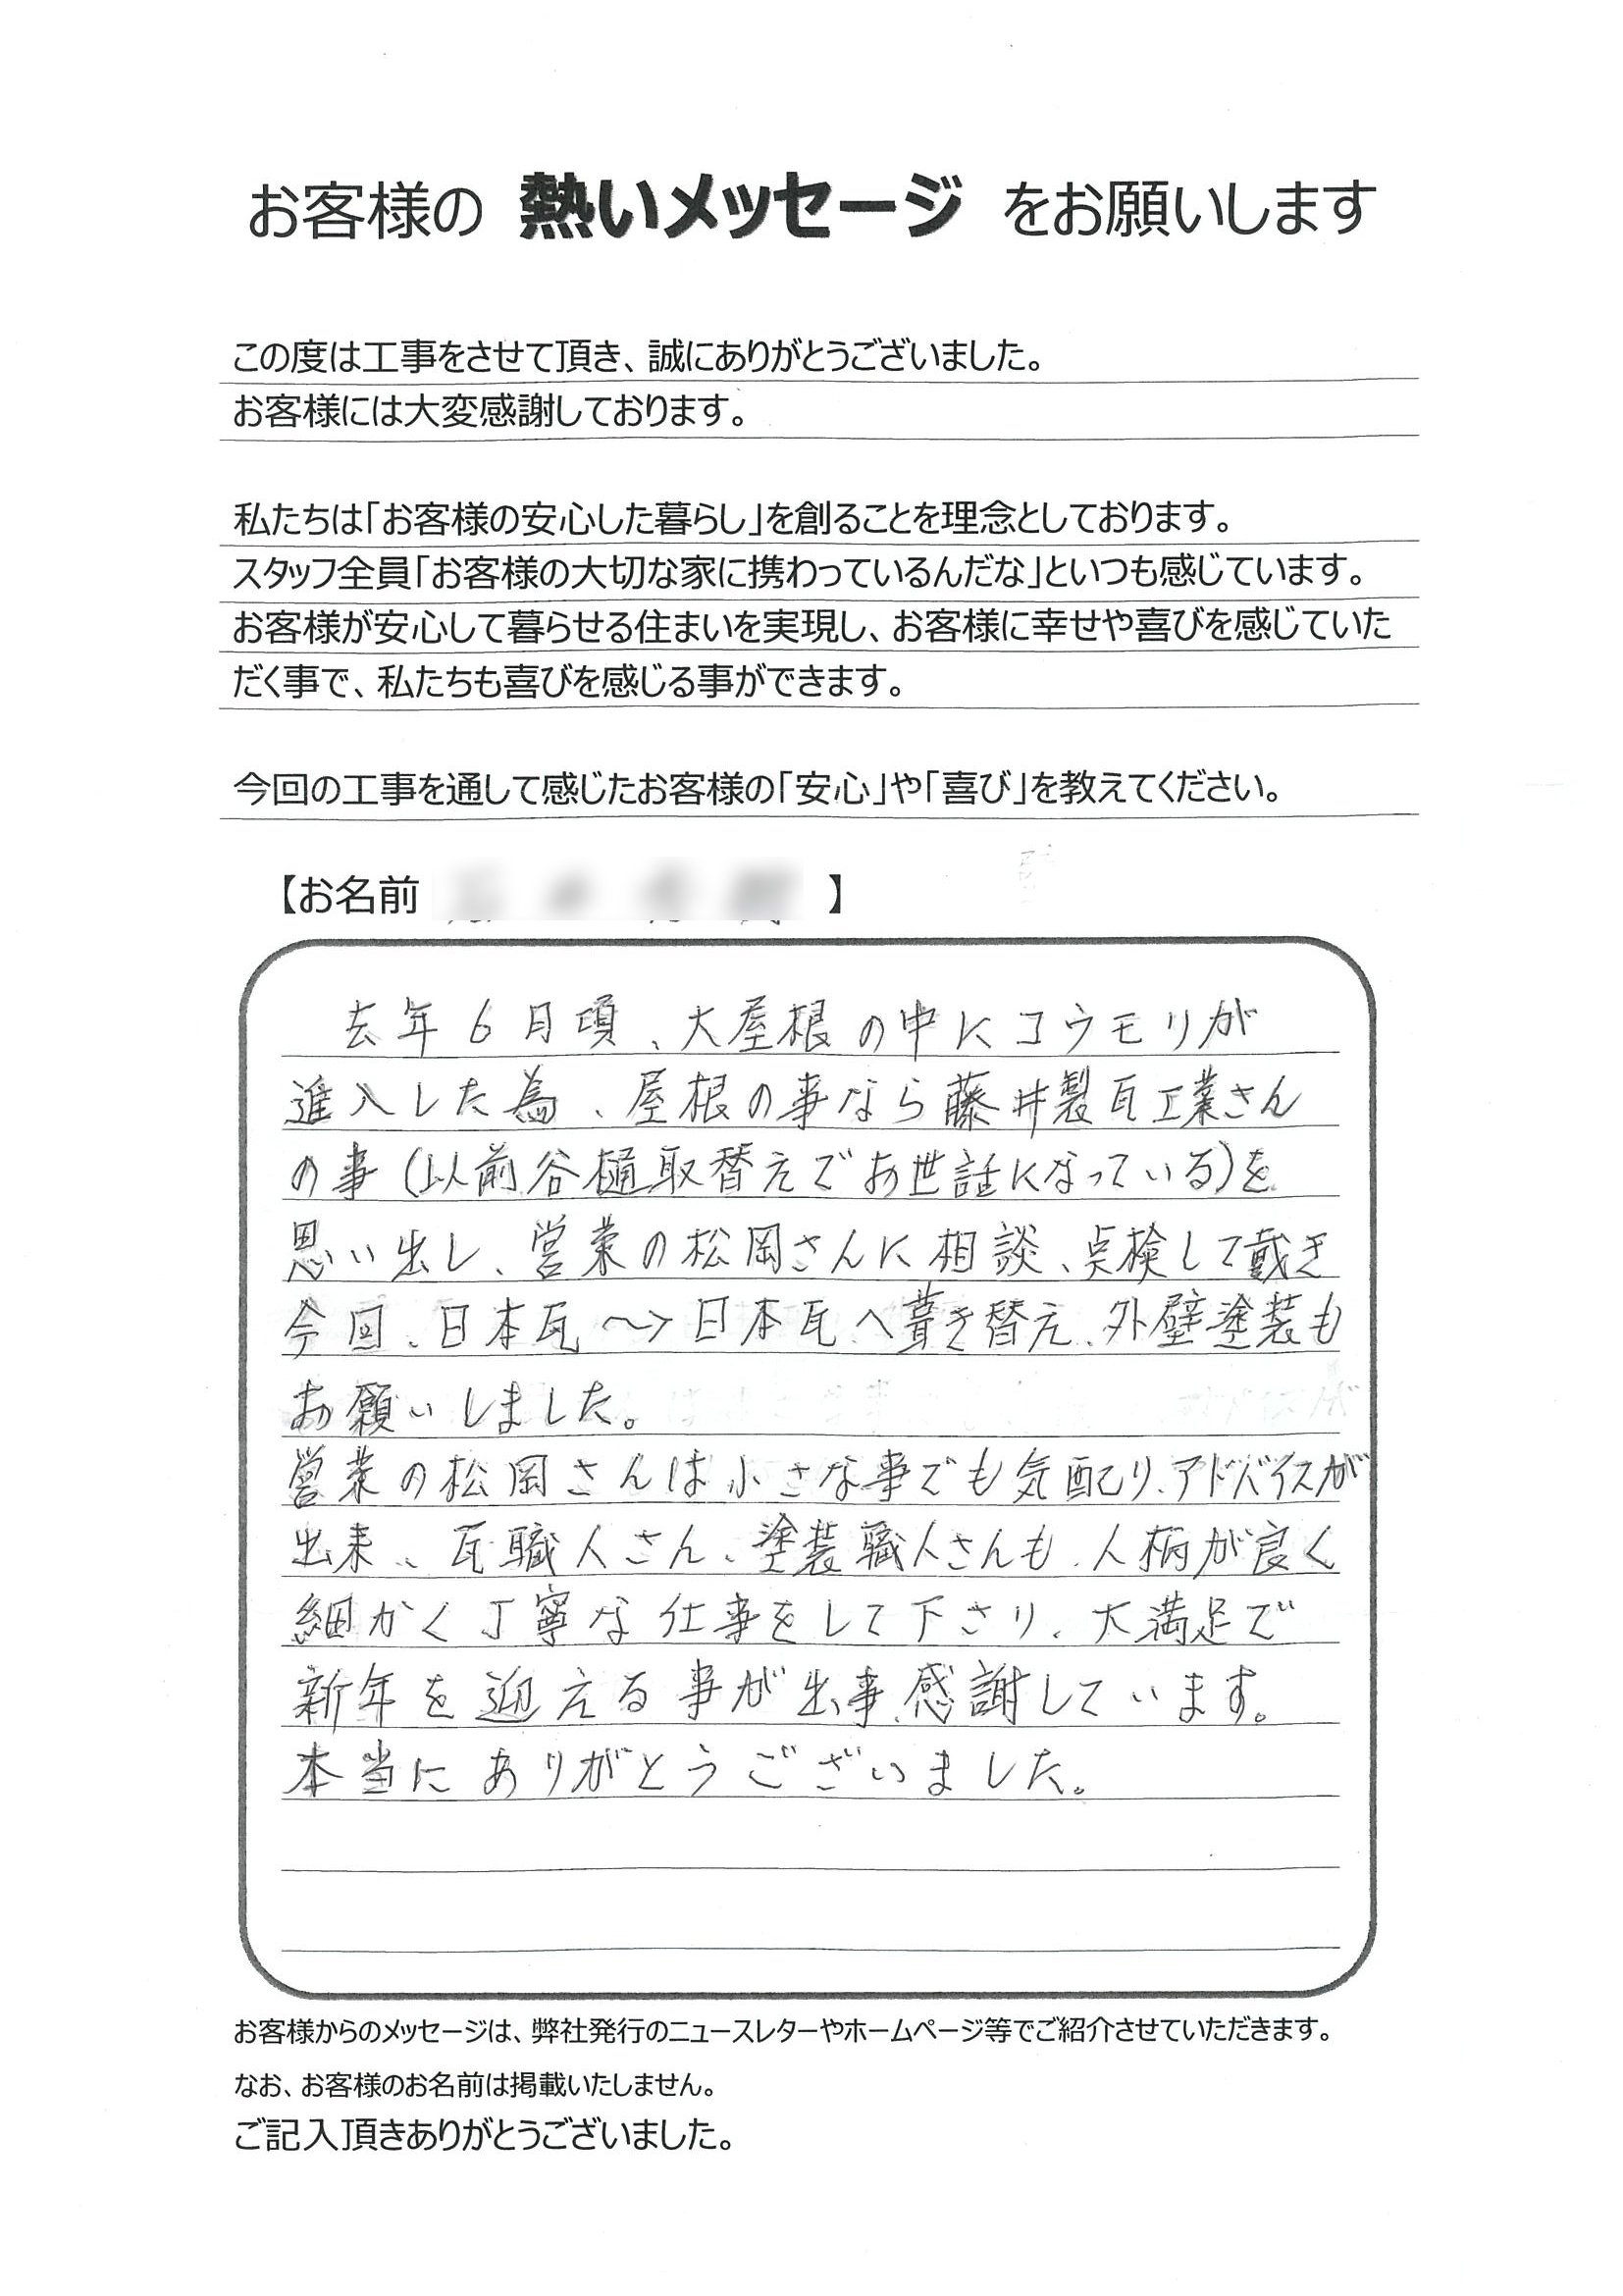 お客様の 熱いメッセージ をお願いします
この度は工事をさせて頂き、誠にありがとうございました。
お客様には大変感謝しております。
私たちは「お客様の安心した暮らし」を創ることを理念としております。
スタッフ全員「お客様の大切な家に携わっているんだな」といつも感じています。
お客様が安心して暮らせる住まいを実現し、お客様に幸せや喜びを感じていた
だく事で、私たちも喜びを感じる事ができます。
今回の工事を通して感じたお客様の「安心」や「喜び」を教えてください。
【お名前 】
去年6月頃、大屋根の中にコウモリが
進入した為、屋根の事なら藤井製瓦工業さん
の事(以前谷樋取替えでお世話になっている)を
思い出し、営業の松岡さんに相談、点検して戴き
今回、日本瓦〜→日本瓦へ葺き替え、外壁塗装も
お願いしました。
営業の松岡さんは小さな事でも気配り、アドバイスが
出来、、瓦職人さん、塗装職人さんも、人柄が良く
細かく丁寧な仕事をして下さり、大満足で
新年を迎える事が出事、感謝しています。
本当にありがとうございました。
お客様からのメッセージは、弊社発行のニュースレターやホームページ等でご紹介させていただきます。
なお、お客様のお名前は掲載いたしません。
ご記入頂きありがとうございました。